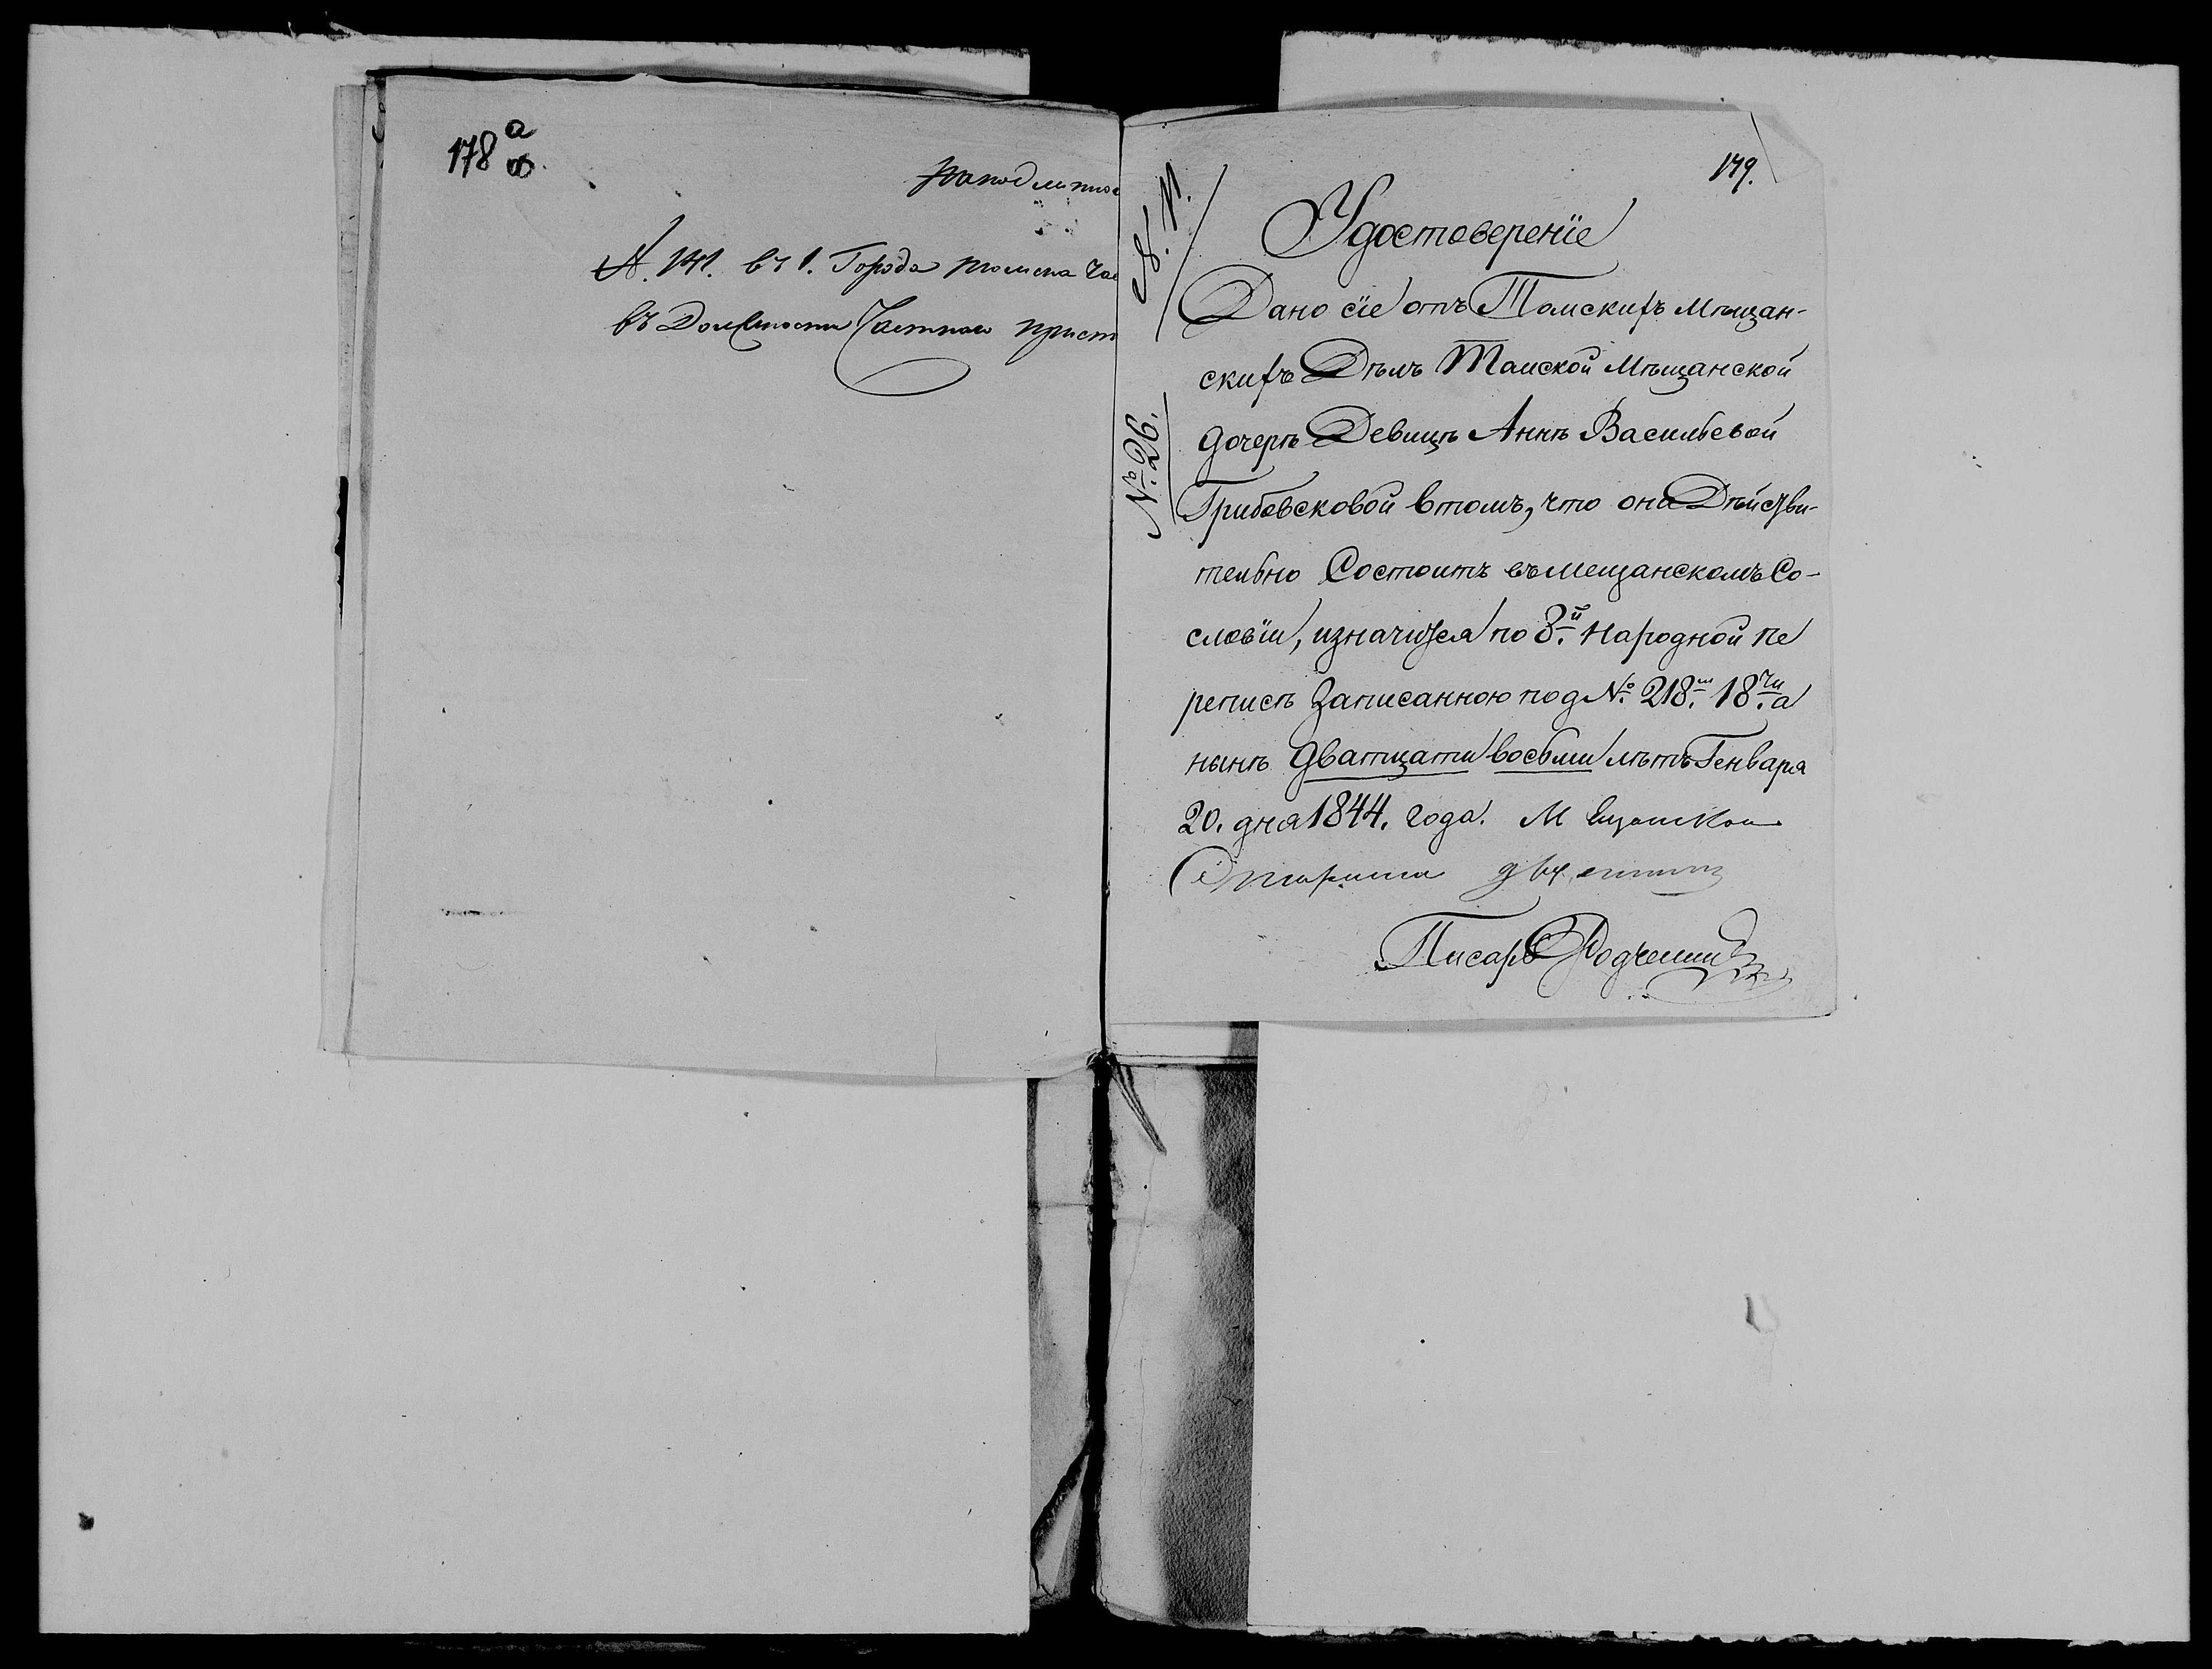 178 а
об.
№. 141. въ 1. Города Томска Час
въ Должности Частнаго прист
179.
№. 26.
Удостоверенїе
Дано сїе отъ Томскихъ Мѣщан-
скихъ Дѣлъ Томской Мѣщанской
дочерѣ Девицѣ Аннѣ Васильевой
Грибовсковой втомъ, что она Дѣйстви-
тельно Состоитъ въ мещанскомъ Со-
словїи, изначится по 8.й Народной пе
реписѣ Записанною под № 218.м 18.ти а
нынѣ дватцати восьми лѣтъ Генваря
20. дня 1844. года. Мещанской
Староста
Писарь